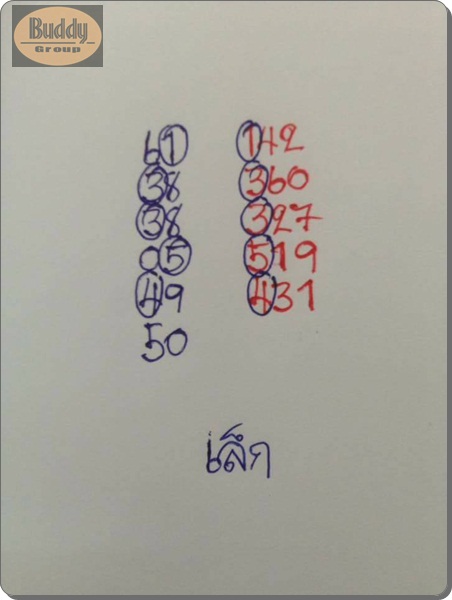 Buddy
Group
61 142
38 360
38 327
05 519
49 431
50
เล็ก